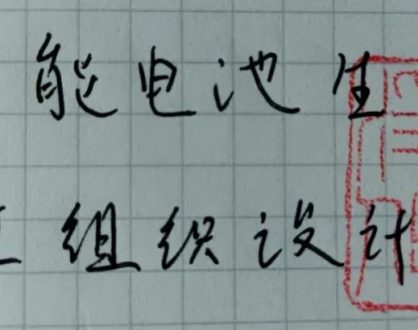 能电池生
组织设计